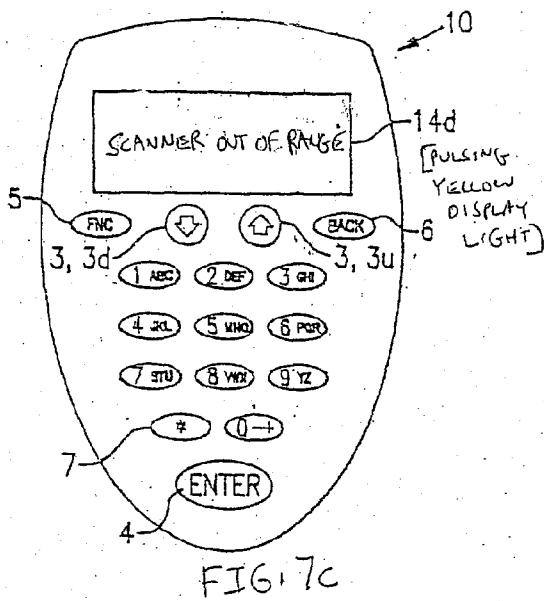 10
SCANNER OUT OF RANGE
14d
[PULSING
YELLOW
DISPLAY
LIGHT]
5
FNC
BACK
6
3, 3d
3, 3u
1 ABC
2 DEF
3 GHI
4 JKL
5 MNO
6 PQR
7 STU
8 VWX
9 YZ
7
*
0
ENTER
4
FIG. 7C